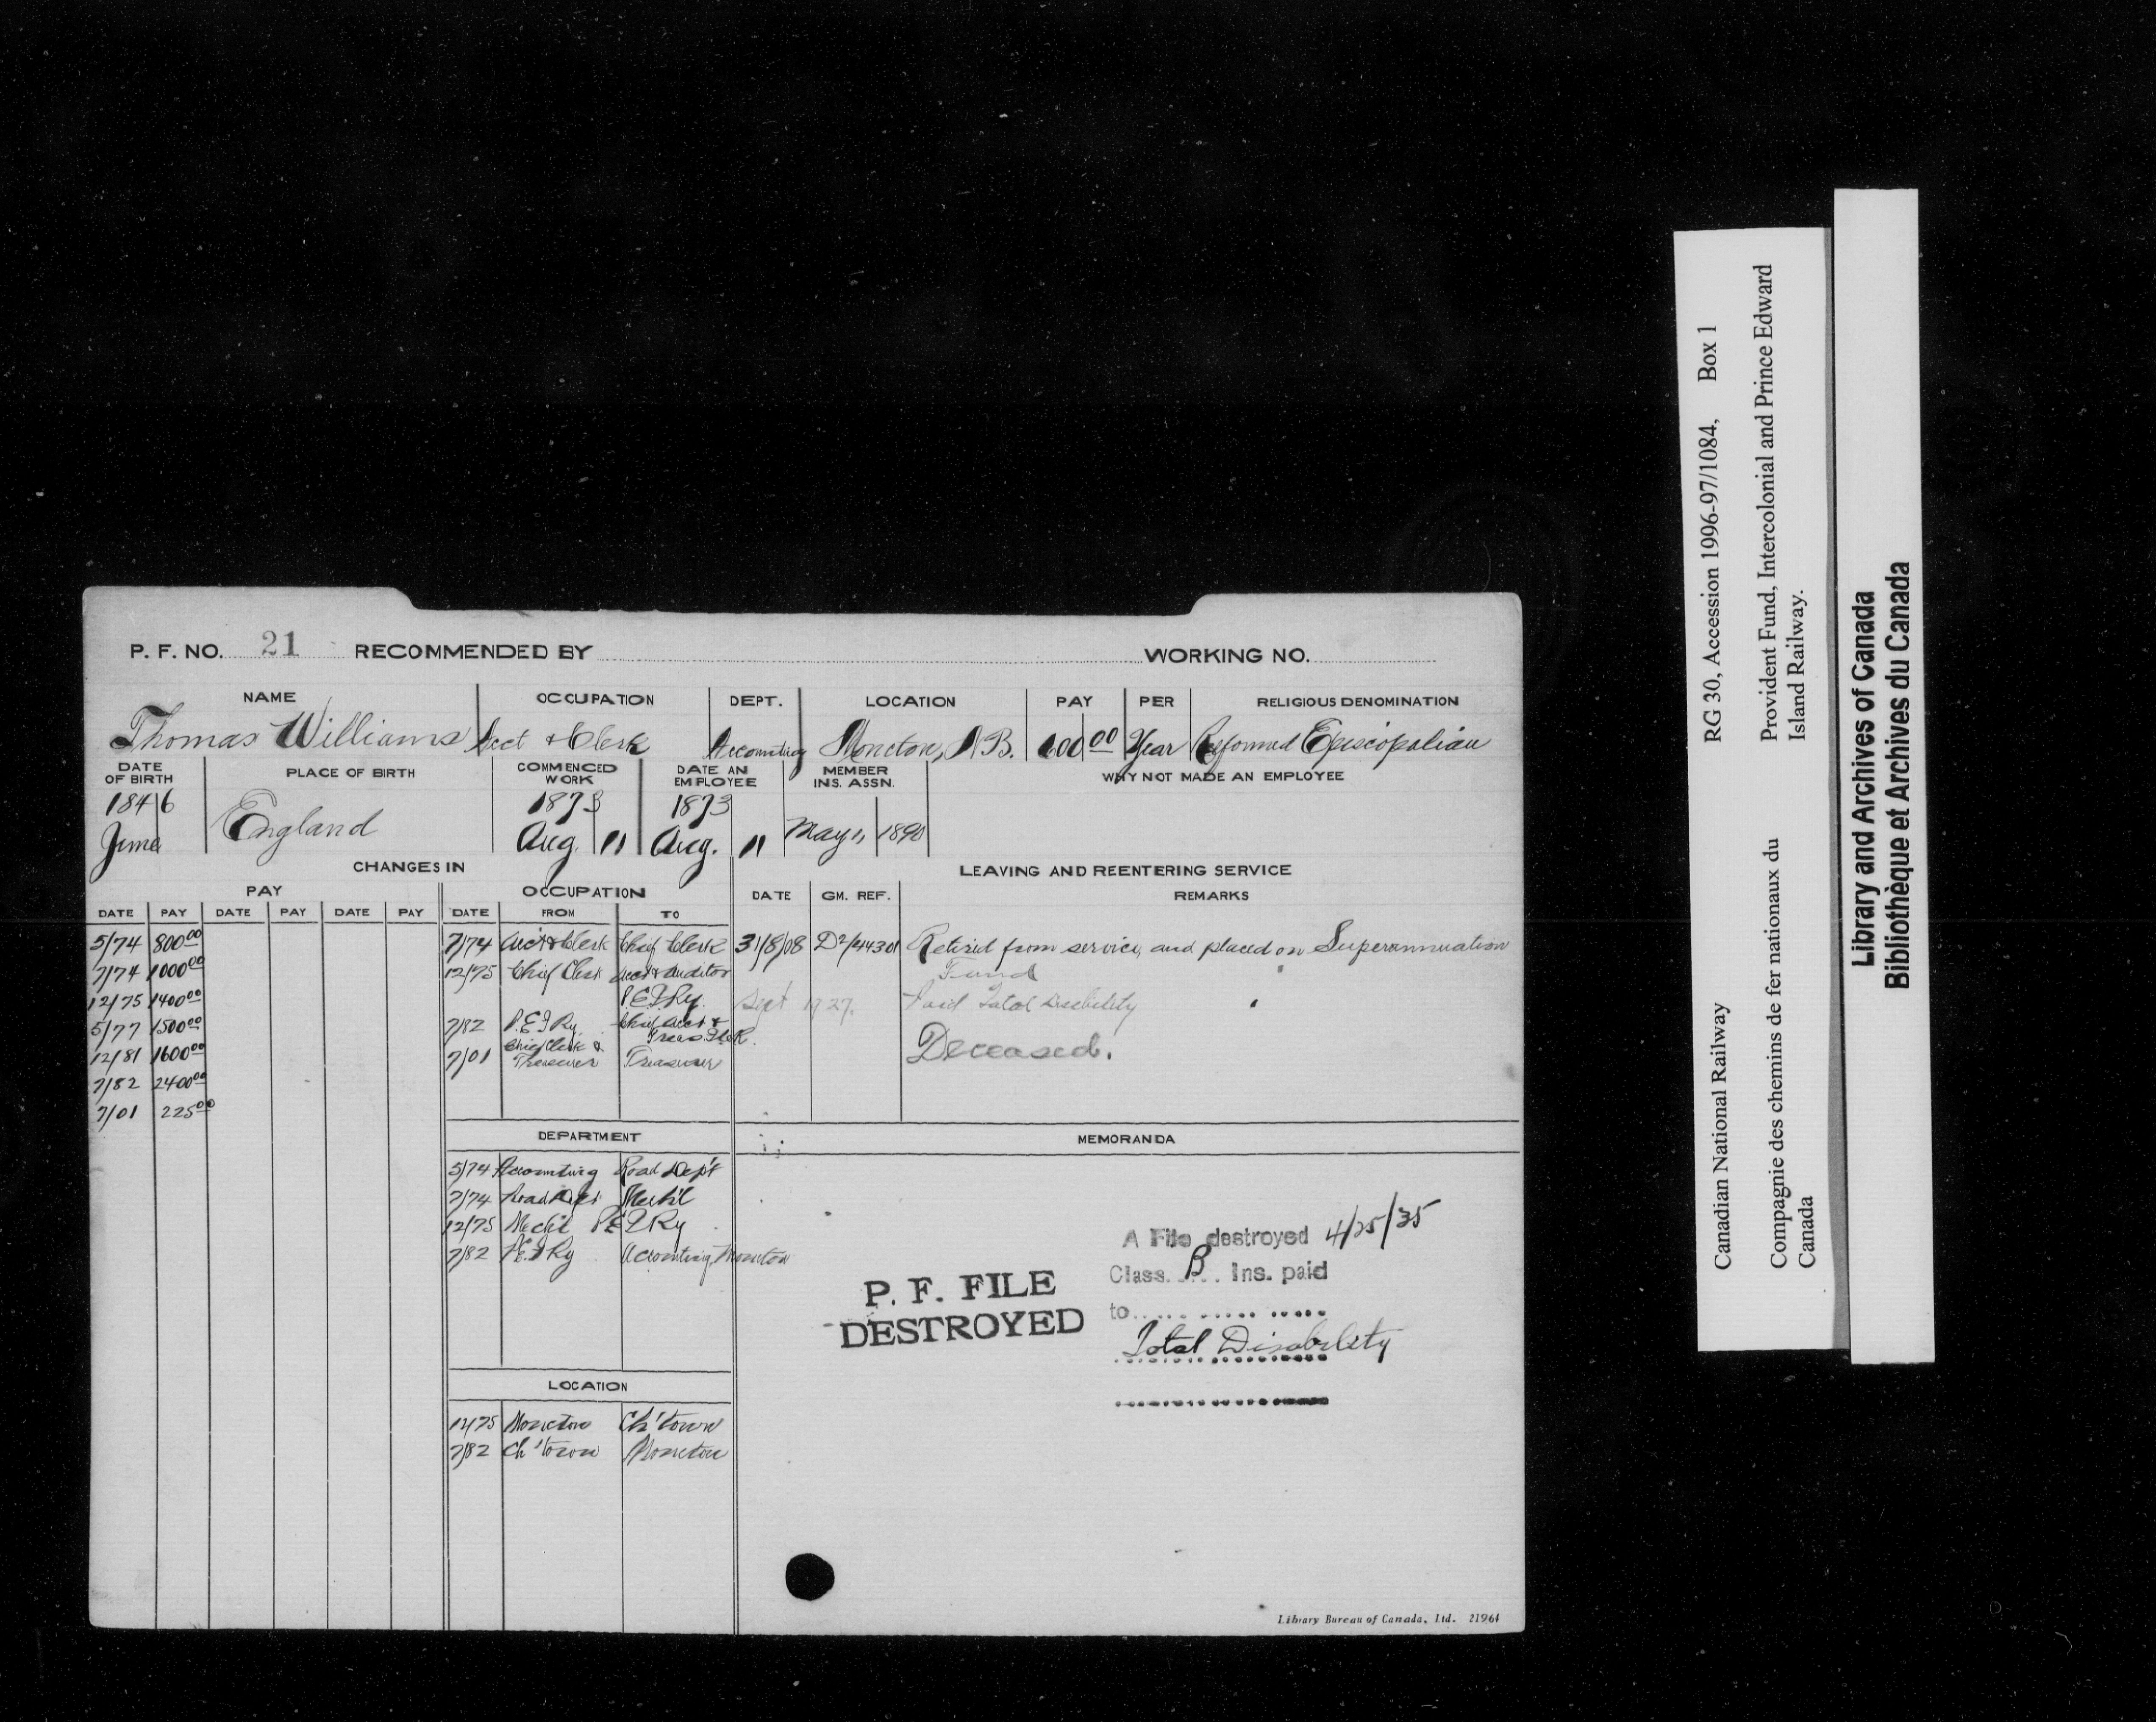 P. F. NO. 21 RECOMMENDED BY WORKING NO.
NAME OCCUPATION DEPT. LOCATION PAY PER RELIGIOUS DENOMINATION
Thomas Williams Acct & Clerk Accounting Moncton, N B. 600 00 Year Reformed Episcopalian
DATE OF BIRTH PLACE OF BIRTH COMMENCED WORK DATE AN EMPLOYEE MEMBER INS. ASSN. WHY NOT MADE AN EMPLOYEE
1846 England 1873 1873
June Aug. 11 Aug. 11 May 1890
CHANGES IN LEAVING AND REENTERING SERVICE
PAY OCCUPATION DATE GM. REF. REMARKS
DATE PAY DATE PAY DATE PAY DATE FROM TO
5/74 800 00 7/74 Acct & Clerk Chief Clerk 31/8/08 Retired from service, and placed on Superannuation
7/74 1000 00 12/75 Chief Clerk Acct & Auditor Fund
12/75 1400 00 P.E.I.Ry. Sept 1927. Paid Total Disability
5/77 1500 00 7/82 P.E.I Ry. Chief Acct &
Treas. I.C.R. Deceased.
12/81 1600 00 7/01 Chief Clerk & Treasurer Treasurer
7/82 2400 00
7/01 225 00
DEPARTMENT MEMORANDA
5/74 Accounting Road Dep't
7/74 Road Dept Mech'l
12/75 Mech'l P.E.I.Ry
7/82 P.E.I Ry Accounting, Moncton
LOCATION
12/75 Moncton Ch'town
7/82 Ch'town Moncton
A File destroyed 4/25/35
Class. B Ins. paid
to
Total Disability
P. F. FILE
DESTROYED
Library Bureau of Canada, Ltd. 21961
Canadian National Railway RG 30, Accession 1996-97/1084, Box 1
Compagnie des chemins de fer nationaux du Provident Fund, Intercolonial and Prince Edward
Canada Island Railway.
Library and Archives of Canada
Bibliothèque et Archives du Canada